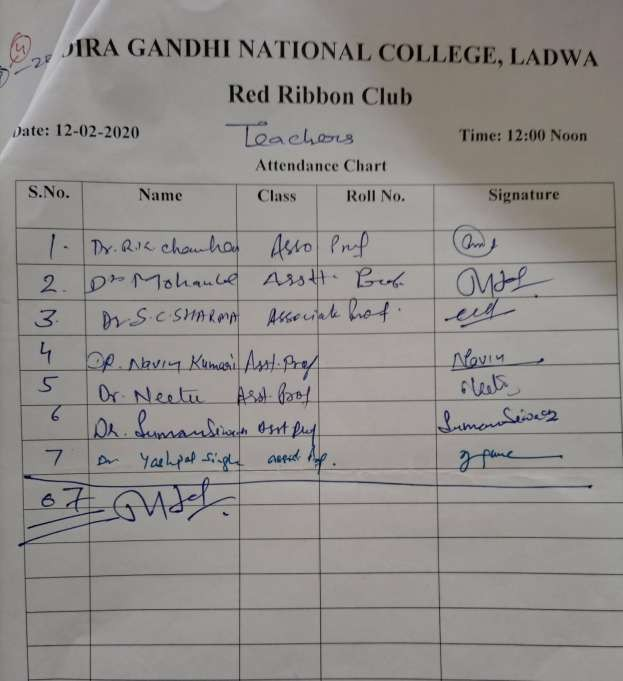 DIRA GANDHI NATIONAL COLLEGE, LADWA
Red Ribbon Club
Date: 12-02-2020 Teachers Time: 12:00 Noon
Attendance Chart
S.No. Name Class Roll No. Signature
1. Dr. R.K Chauhan Asso Prof
2. Dr Mohan Asstt. Prof.
3. Dr S.C SHARMA Associate Prof.
4 DR. Navin Kumari Asst. Prof Navin
5 Dr. Neetu Asst. Prof Neetu
6 DR. Suman Siwach Asst Prof Suman Siwach
7 Dr Yashpal Singh Prof.
07